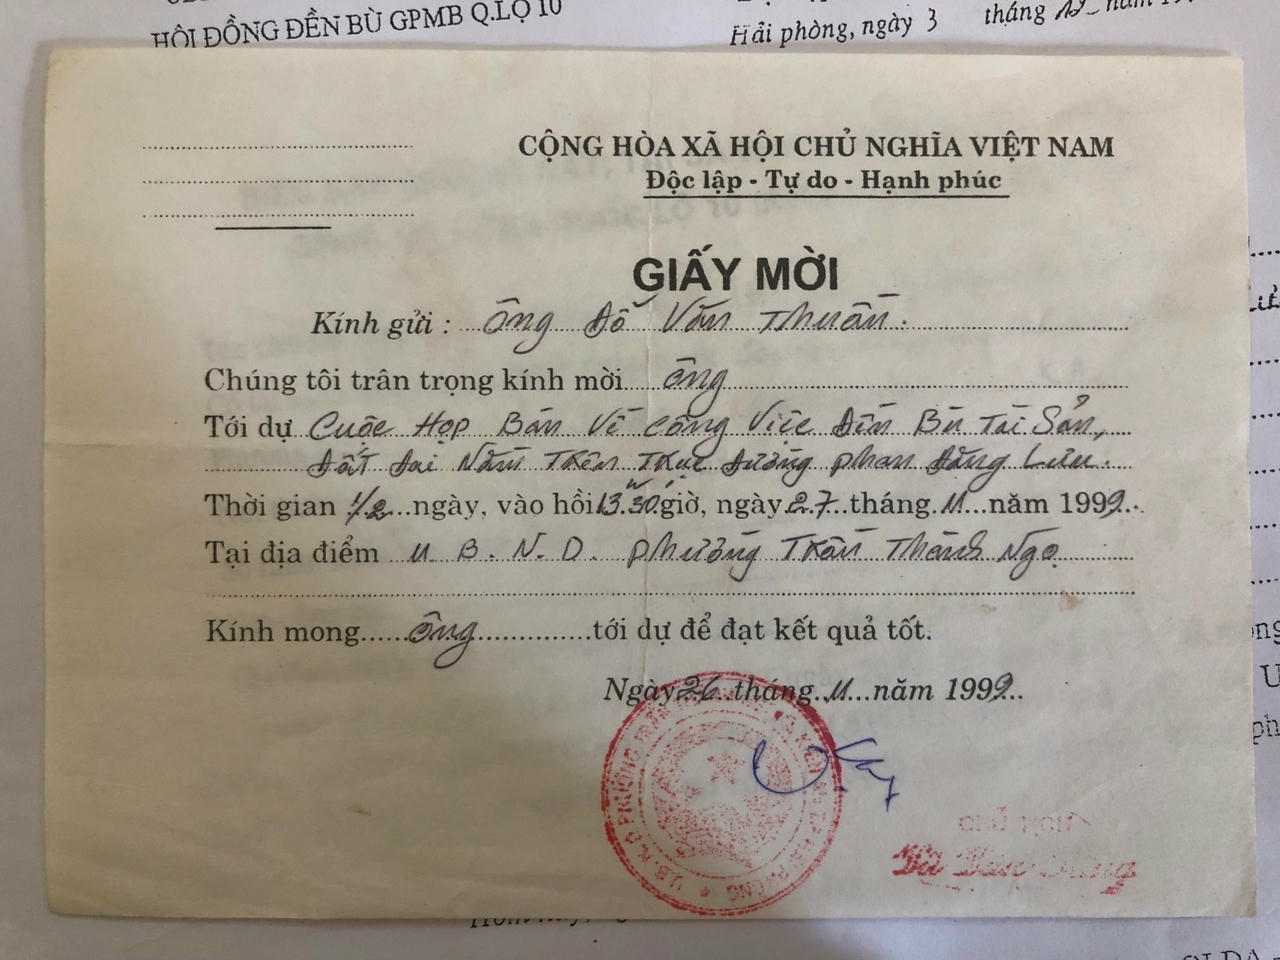 HỘI ĐỒNG ĐỀN BÙ GPMB Q.LỘ 10
Hải phòng, ngày 3 tháng 12 năm
CỘNG HÒA XÃ HỘI CHỦ NGHĨA VIỆT NAM
Độc lập - Tự do - Hạnh phúc
GIẤY MỜI
Kính gửi : Ông Đỗ Văn Thuấn.
Chúng tôi trân trọng kính mời ông
Tới dự Cuộc Họp Bàn Về Công Việc Đền Bù Tài Sản,
Đất Đai Nằm Trên Trục Đường Phan Đăng Lưu.
Thời gian 1/2 ngày, vào hồi 13.30 giờ, ngày 27 tháng 11 năm 1999
Tại địa điểm U.B.N.D. Phường Trần Thành Ngọ
Kính mong ông tới dự để đạt kết quả tốt.
Ngày 26 tháng 11 năm 1999
CHỦ TỊCH